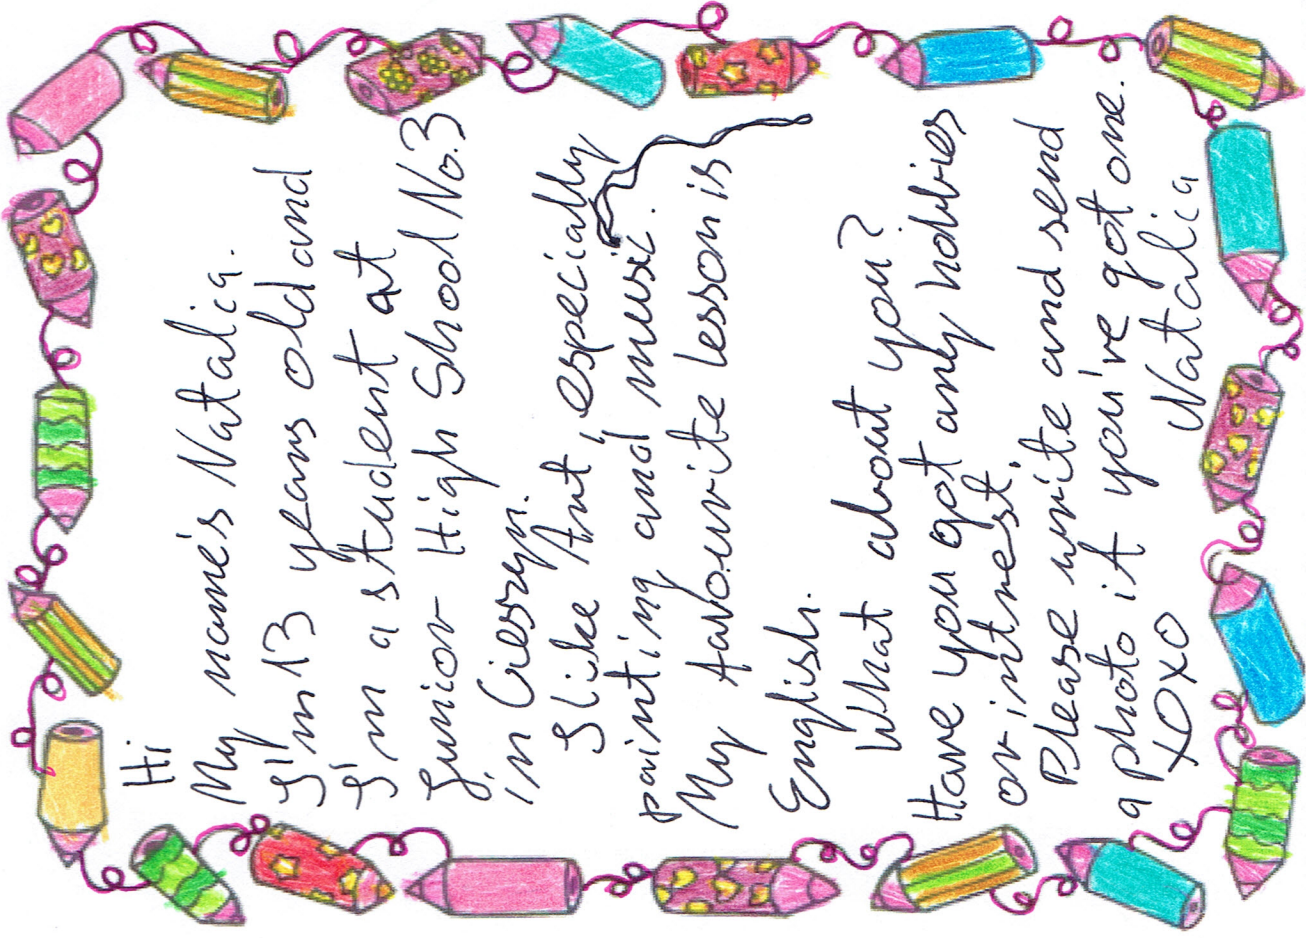 Hi
My name's Natalia.
I'm 13 years old and
I'm a student at
Junior High Shool No.3
in Cieszyn.
I like Art, especially
painting and music.
My favourite lesson is
English.
What about you?
Have you got any hobbies
or intrest.
Please write and send
a photo if you've got one.
XOXO Natalia